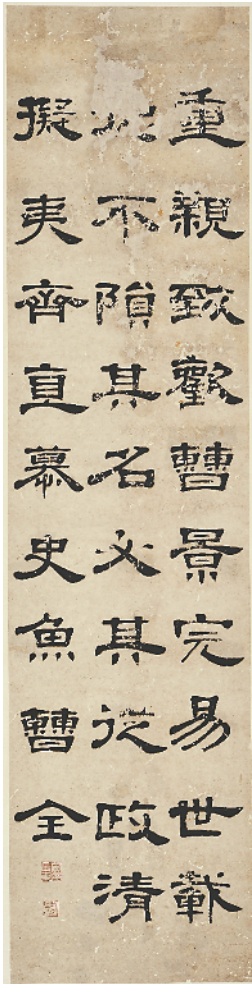 重親致歡曹景完易世載
不隕其名及其從政清
擬夷齊直慕史魚曹全